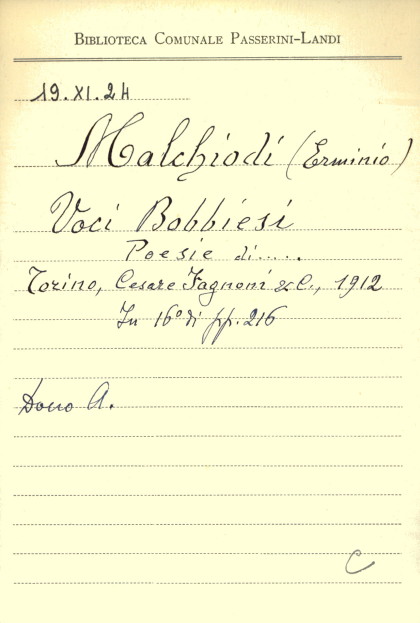 BIBLIOTECA COMUNALE PASSERINI-LANDI
19.XI.24
Malchiodi (Erminio)
Voci Bobbiesi
Poesie di.....
Torino, Cesare Fagnoni & C., 1912
In 16° di pp. 216
Dono A.
C